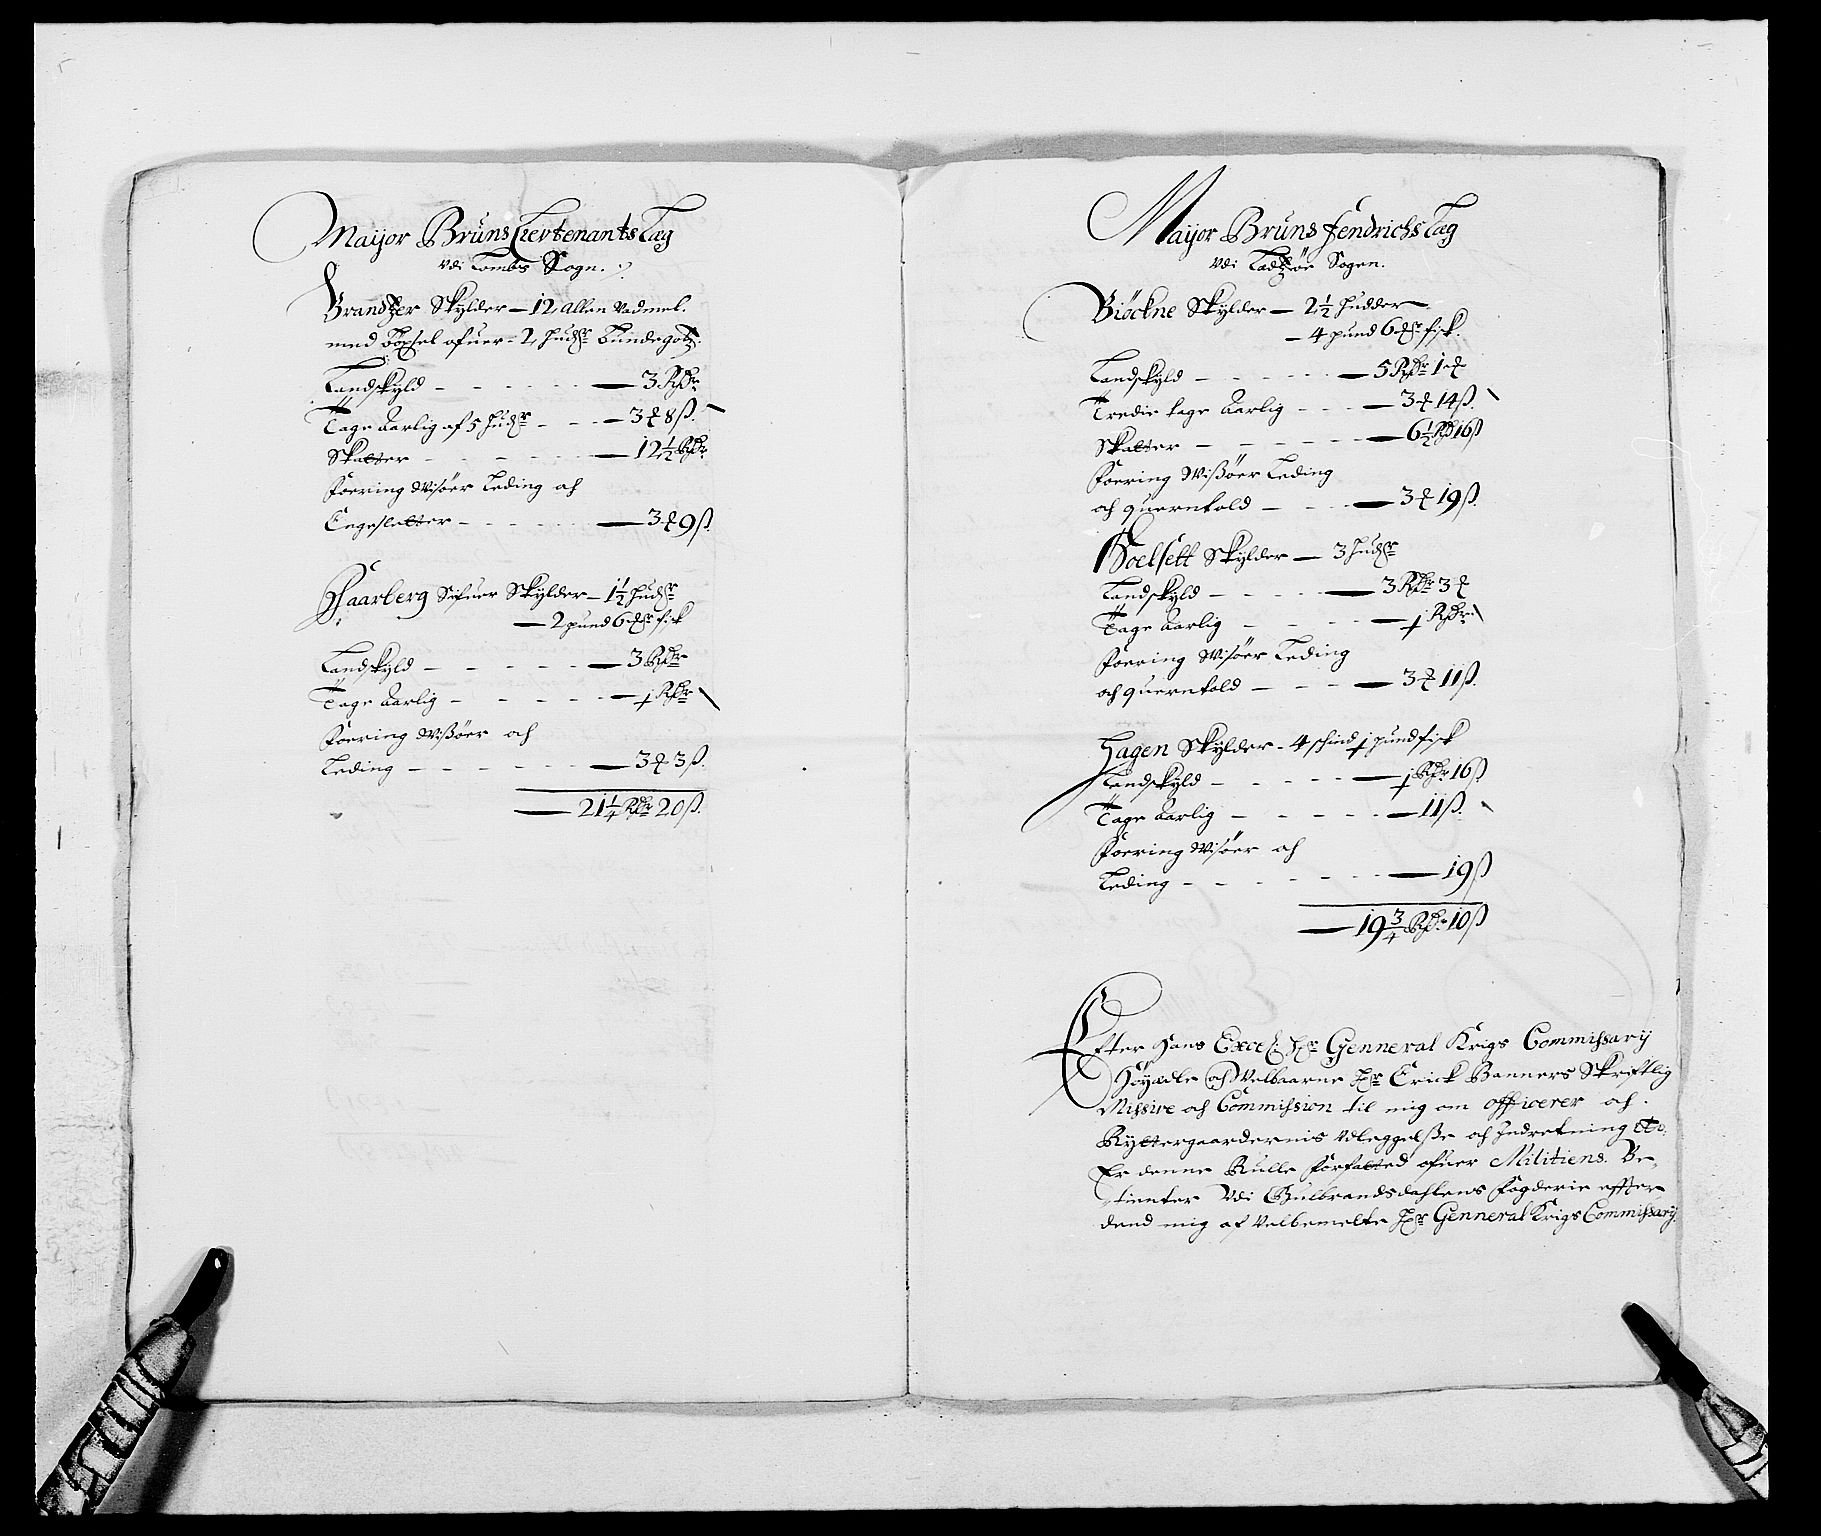 Maijor Bruns Lieutenants Læg
vdi Lombs Sogn.
Brandzer Skylder – 12 allen Vadmel.
med böxel ofuer – 2, Hudr Bundegotz.
Landskyld – 3 Rdr
3die Tage Aarlig af 5 Hudr – 3 ꝥ 8 ß.
Skatter – 12½ Rdr
Foering Wisöer Leding och
Engeslætter – 3 ꝥ 9 ß.
Haarberg Sifuer Skylder – 1½ Hudr
– 2 pund 6 mkr fisk
Landskyld – 3 Rdr
Tage Aarlig – 1 Rdr
Foering Wißöer och
Leding – 3 ꝥ 3 ß.
– 21¼ Rdr 20 ß.
Maijor Bruns Fendrichs Læg
vdi Ladzöe Sogen.
Biöckne Skylder – 2½ Hudder
– 4 pund 6 mkr fisk.
Landskyld – 5 Rdr 1 ꝥ
Tredie tage Aarlig – 3 ꝥ 14 ß.
Skatter – 6½ Rd 16 ß
Foering Wißöer Leding
och quernetold – 3 ꝥ 19 ß.
Hoelsett Skylder – 3 Hudr
Landskyld – 3 Rdr 3 ꝥ
Tage Aarlig – 1 Rdr
Foering Wisöer Leding
och quernetold – 3 ꝥ 11 ß.
Hagen Skylder – 4 schind 1 pund fisk
Landskyld – 1 Rdr 16 ß
Tage Aarlig – 11 ß.
Foering Wisöer och
Leding – 19 ß
– 19¾ Rdr 10 ß
Efter Hans Excel: Hr Genneral Krigs Commissarij
Höyædle och Velbaarne Hr Erick Banners Skriftlig
Missive och Commission til mig om officerer och
Ryttergaardernis Vdleggelße och Indretning etc:
Er denne Rulle forfatted ofuer Militiens Be-
tienter Vdi Gulbrandsdahlens fogderie effter
dend mig af Velbemelte Hr Genneral Krigs Commissarij